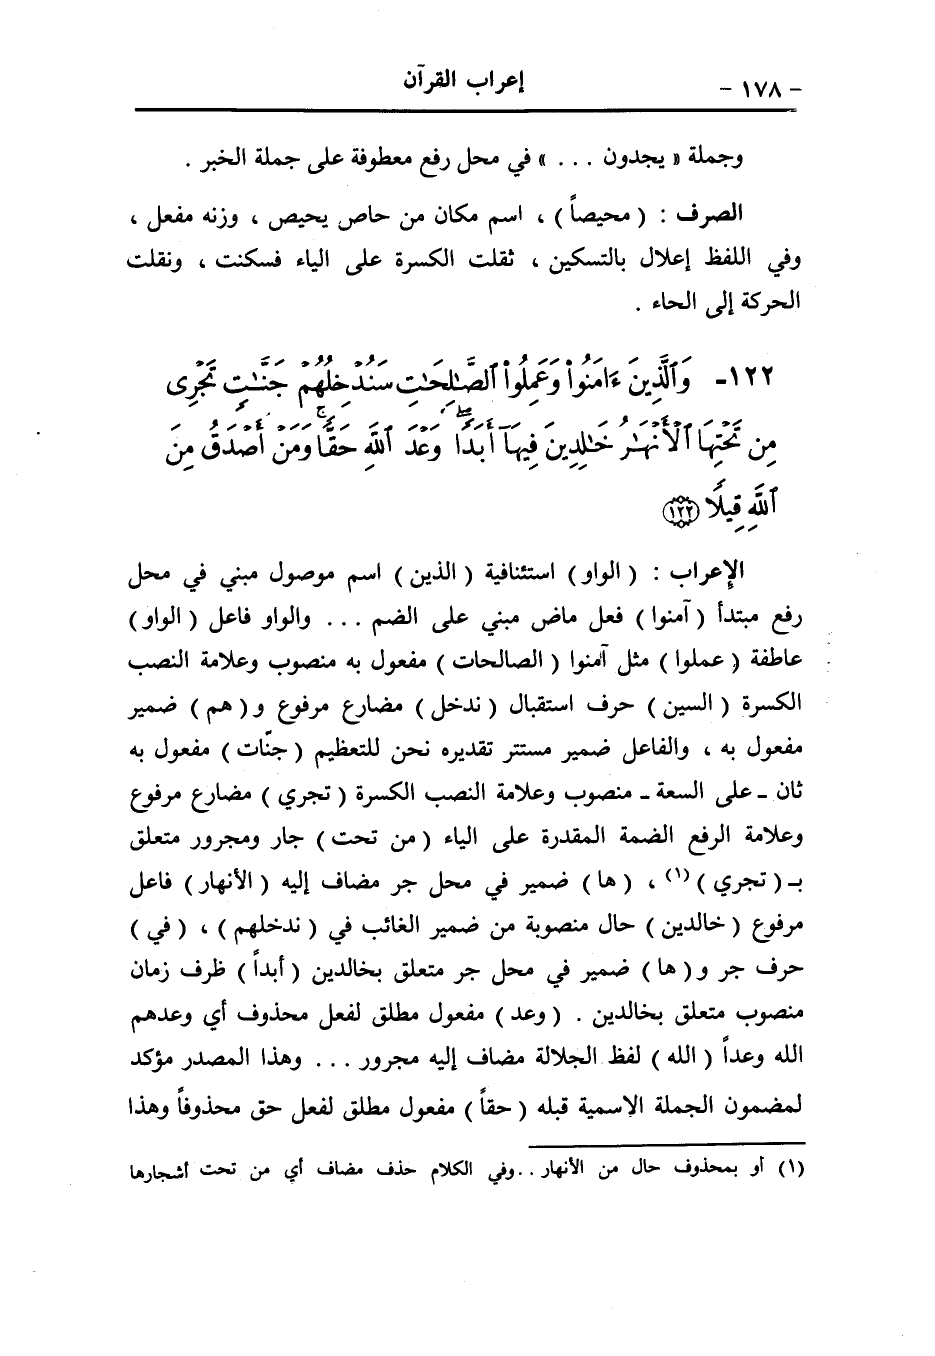 - ١٧٨ -
إعراب القرآن
وجملة « يجدون ... » في محل رفع معطوفة على جملة الخبر .
الصرف : ( محيصاً ) ، اسم مكان من حاص يحيص ، وزنه مفعل ،
وفي اللفظ إعلال بالتسكين ، ثقلت الكسرة على الياء فسكنت ، ونقلت
الحركة إلى الحاء .
١٢٢- وَٱلَّذِينَ ءَامَنُوا۟ وَعَمِلُوا۟ ٱلصَّـٰلِحَـٰتِ سَنُدْخِلُهُمْ جَنَّـٰتٍ تَجْرِى
مِن تَحْتِهَا ٱلْأَنْهَـٰرُ خَـٰلِدِينَ فِيهَآ أَبَدًا ۖ وَعْدَ ٱللَّهِ حَقًّا ۚ وَمَنْ أَصْدَقُ مِنَ
ٱللَّهِ قِيلًا ١٢٢
الإعراب : ( الواو ) استئنافية ( الذين ) اسم موصول مبني في محل
رفع مبتدأ ( آمنوا ) فعل ماض مبني على الضم ... والواو فاعل ( الواو )
عاطفة ( عملوا ) مثل آمنوا ( الصالحات ) مفعول به منصوب وعلامة النصب
الكسرة ( السين ) حرف استقبال ( ندخل ) مضارع مرفوع و( هم ) ضمير
مفعول به ، والفاعل ضمير مستتر تقديره نحن للتعظيم ( جنّات ) مفعول به
ثان ـ على السعة ـ منصوب وعلامة النصب الكسرة ( تجري ) مضارع مرفوع
وعلامة الرفع الضمة المقدرة على الياء ( من تحت ) جار ومجرور متعلق
بـ ( تجري ) (١) ، ( ها ) ضمير في محل جر مضاف إليه ( الأنهار ) فاعل
مرفوع ( خالدين ) حال منصوبة من ضمير الغائب في ( ندخلهم ) ، ( في )
حرف جر و( ها ) ضمير في محل جر متعلق بخالدين ( أبداً ) ظرف زمان
منصوب متعلق بخالدين . ( وعد ) مفعول مطلق لفعل محذوف أي وعدهم
الله وعداً ( الله ) لفظ الجلالة مضاف إليه مجرور ... وهذا المصدر مؤكد
لمضمون الجملة الاسمية قبله ( حقاً ) مفعول مطلق لفعل حق محذوفاً وهذا
(١) أو بمحذوف حال من الأنهار ..وفي الكلام حذف مضاف أي من تحت أشجارها